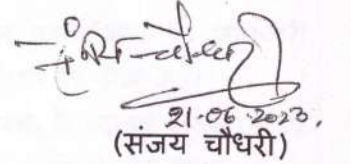 21.06.2023.
(संजय चौधरी)